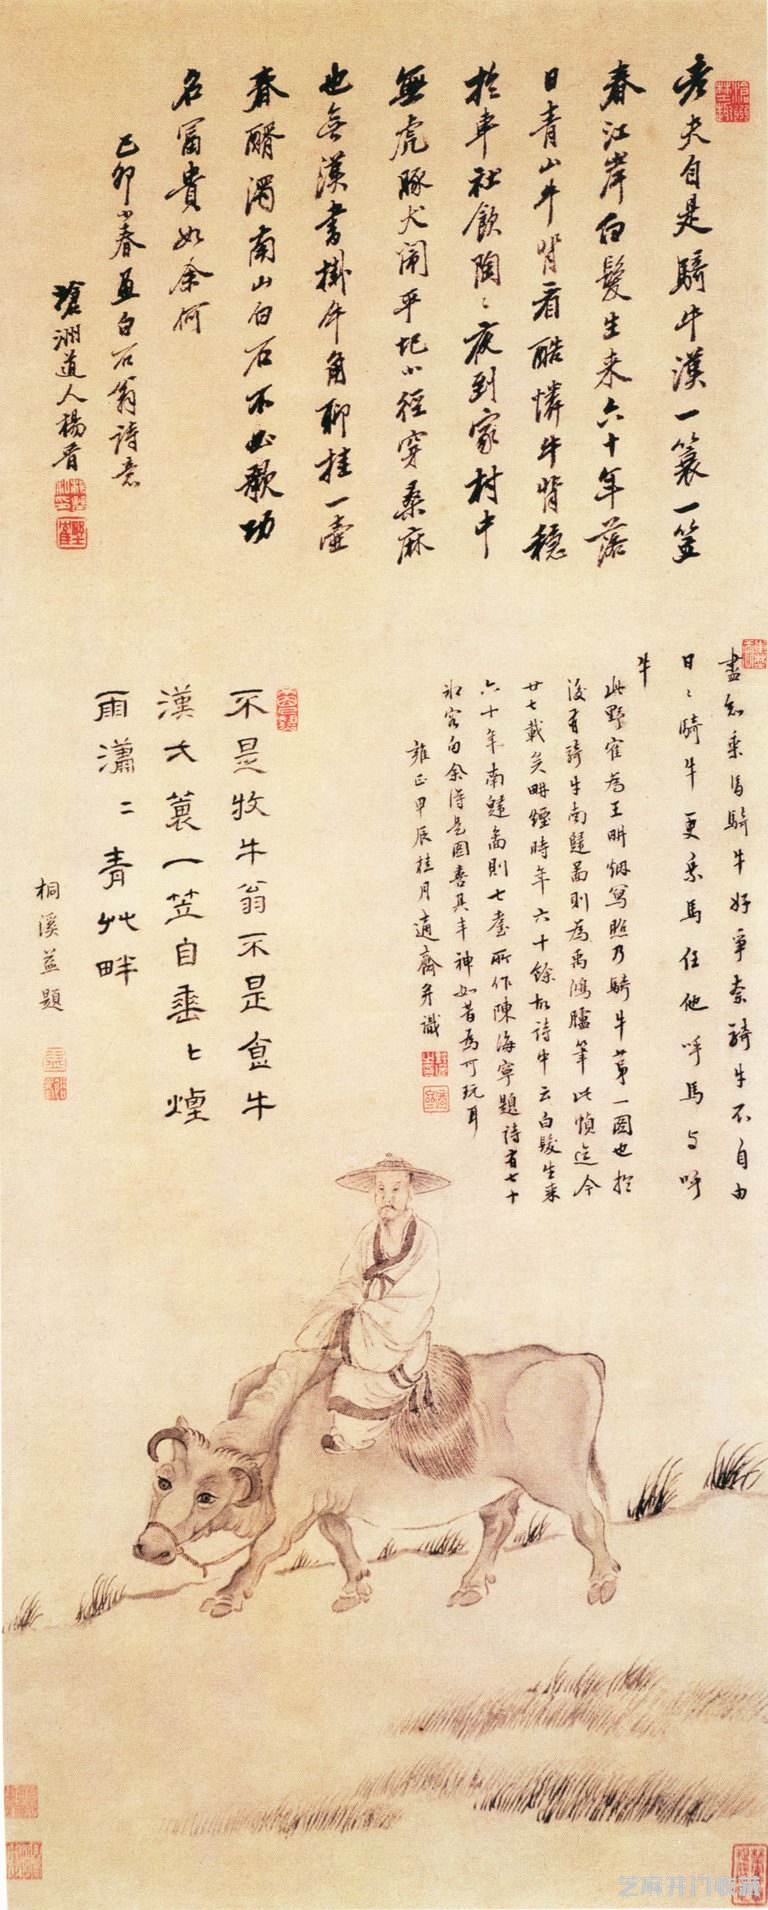 老夫自是騎牛漢一蓑一笠
春江岸白髮生来六十年落
日青山牛背看酷憐牛背穩
於車社飲陶〻夜到家村中
無虎豚犬閙平圯小徑穿桑麻
也無漢書掛牛角聊挂一壺
春醑濁南山白石不必歌功
名富貴如余何
己卯小春画白石翁詩意
滄洲道人楊晋
盡知乗馬騎牛好爭奈騎牛不自由
日〻騎牛更乗馬任他呼馬与呼
牛
此野崔為王畊烟寫照乃騎牛第一圖也於
後有騎牛南還圖則為禹鴻臚筆此幀迄今
廿七載矣畊煙時年六十餘故詩中云白髮生来
六十年南還圖則七耋所作陳海寧題詩有七十
余得是圖喜其丰神如昔為可玩耳
雍正甲辰桂月適齋并識
不是牧牛翁不是飯牛
漢弌蓑一笠自垂〻煙
雨瀟〻青艸畔
桐溪益題
芝麻开门收藏